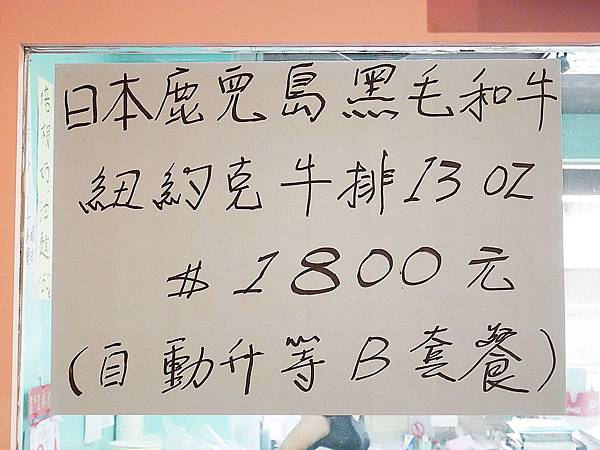 日本鹿兒島黑毛和牛
紐約克牛排13 OZ
# 1800元
(自動升等B套餐)